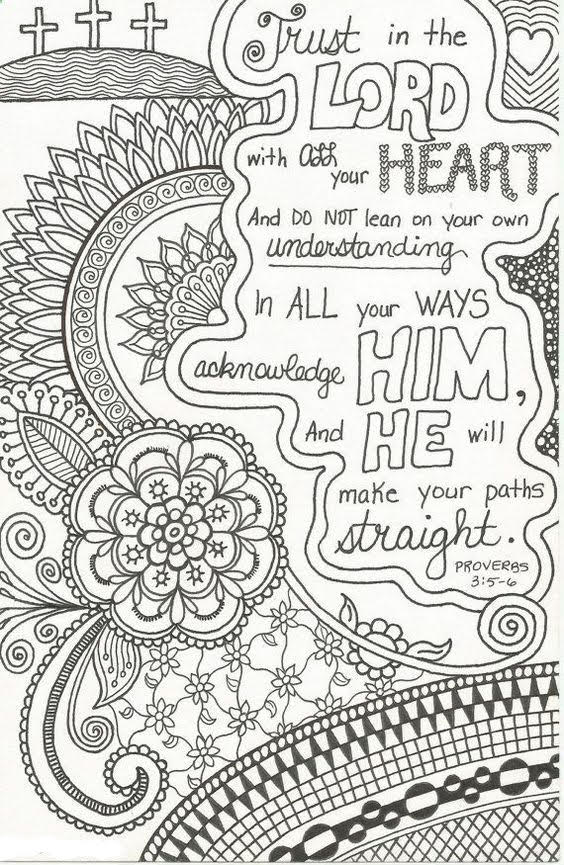 Trust in the
LORD
with all your HEART
And DO NOT lean on your own
understanding
In ALL your WAYS
acknowledge HIM,
And HE will
make your paths
straight.
PROVERBS
3:5-6